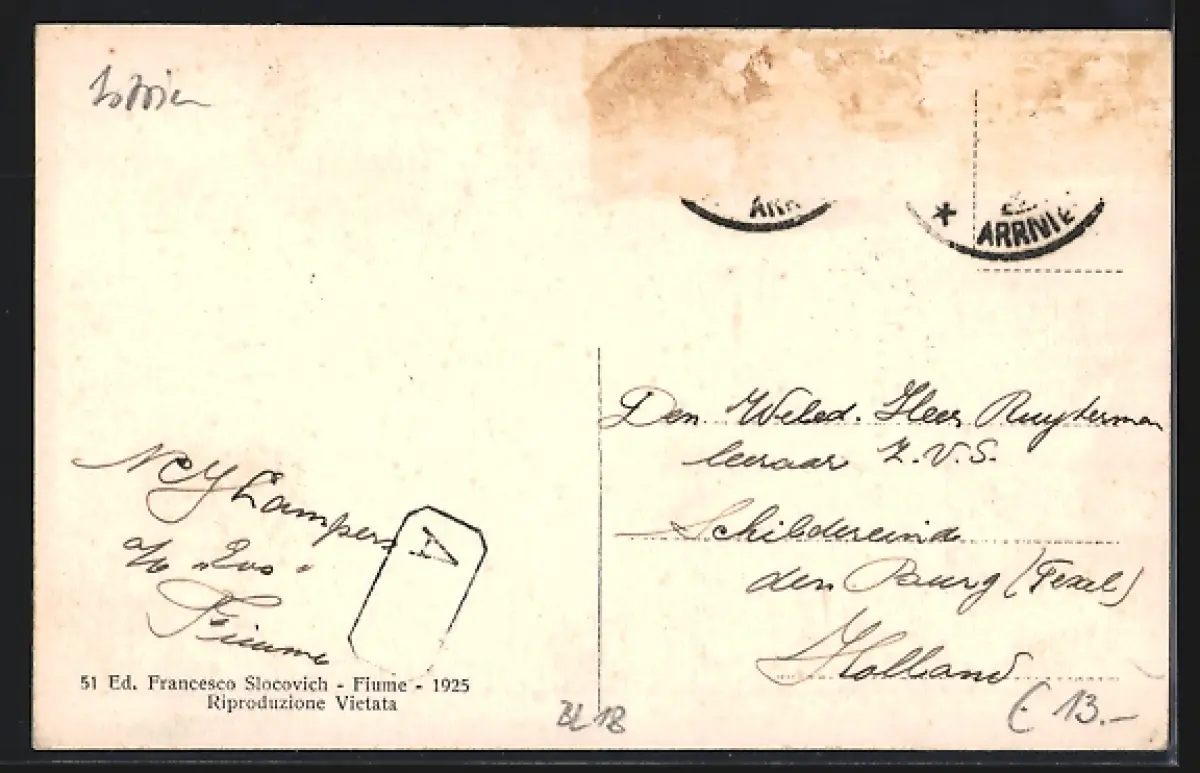 ARR
* ARRIVI
Den Weled. Heer Ruyterman
leeraar Z.V.S.
Schildereinde
den Burg (Texel)
Holland
NCY Lampers
a/b „Ros"
Fiume
A
51 Ed. Francesco Slocovich - Fiume - 1925
Riproduzione Vietata
BL1B
€ 13.-